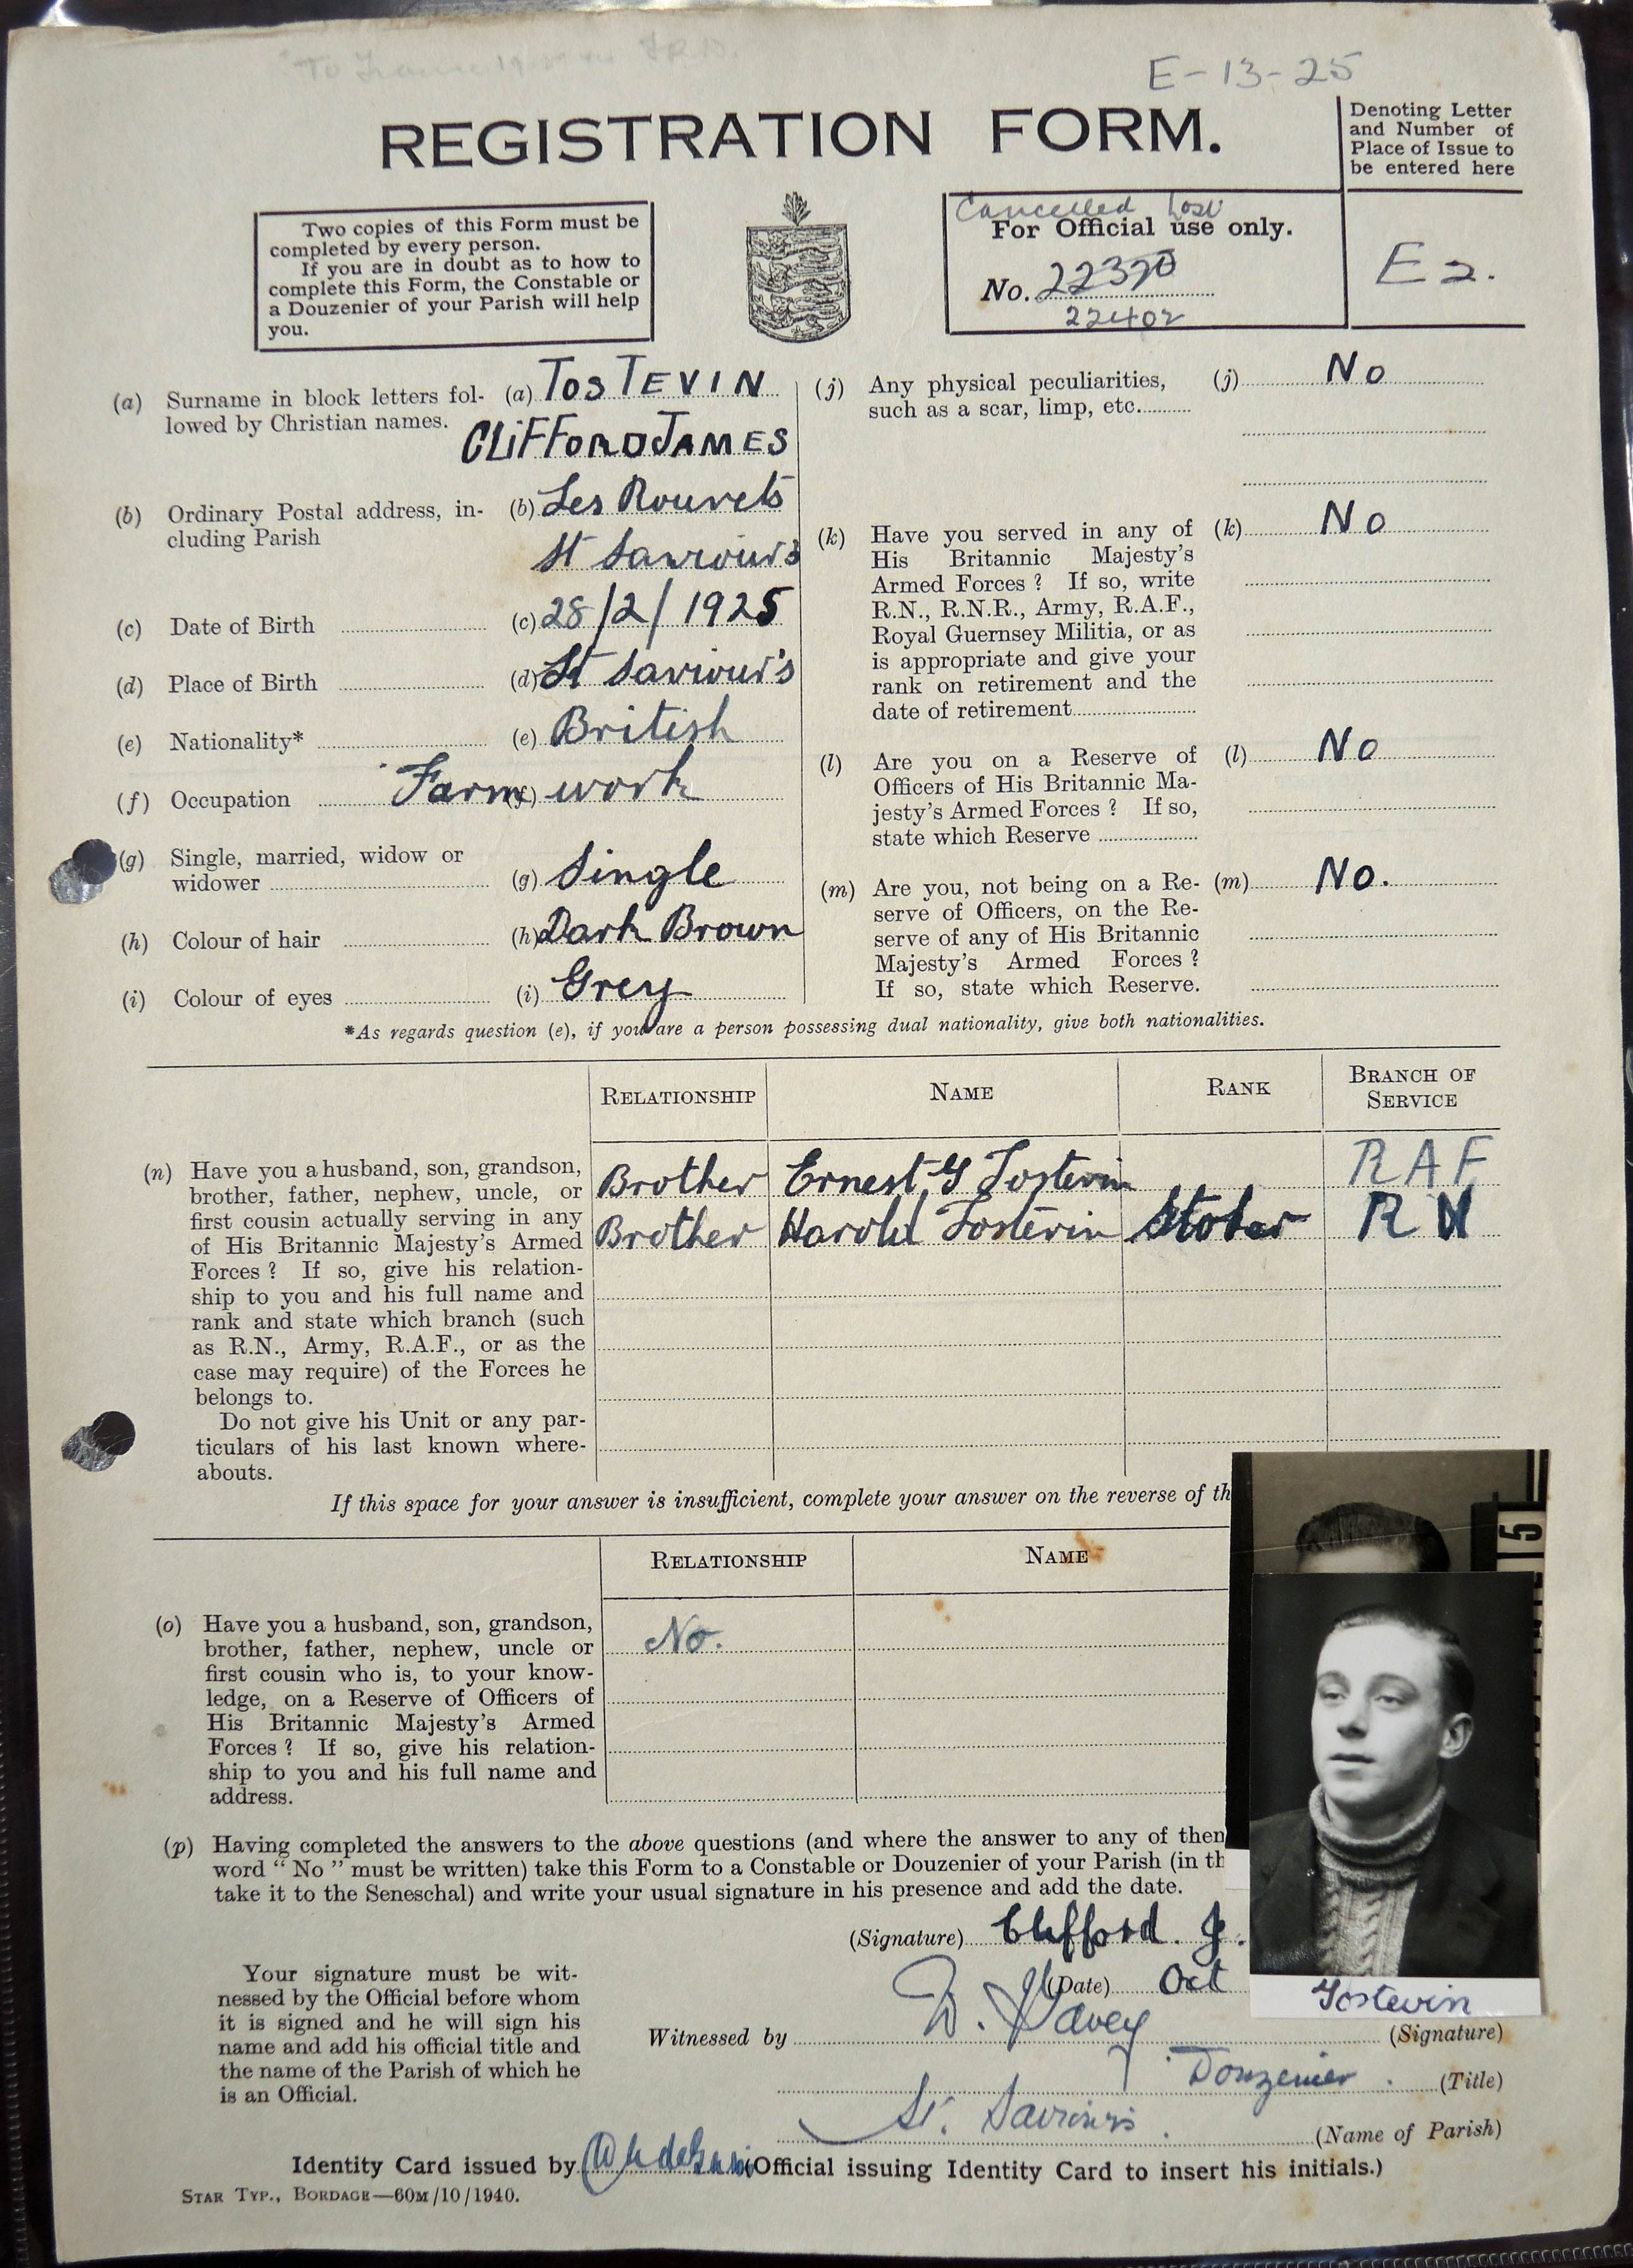 To France
E-13-25
REGISTRATION FORM.
Denoting Letter
and Number of
Place of Issue to
be entered here
Two copies of this Form must be
completed by every person.
If you are in doubt as to how to
complete this Form, the Constable or
a Douzenier of your Parish will help
you.
Cancelled Lost
For Official use only.
No. 22370
22402
E 2.
(a) Surname in block letters fol- (a) TOSTEVIN
lowed by Christian names.
CLIFFORD JAMES
(b) Ordinary Postal address, in- (b) Les Rouvets
cluding Parish
St Saviour's
(c) Date of Birth (c) 28/2/1925
(d) Place of Birth (d) St Saviour's
(e) Nationality* (e) British
(f) Occupation (f) Farm work
(g) Single, married, widow or
widower (g) Single
(h) Colour of hair (h) Dark Brown
(i) Colour of eyes (i) Grey
(j) Any physical peculiarities, (j) No
such as a scar, limp, etc.
(k) Have you served in any of (k) No
His Britannic Majesty's
Armed Forces? If so, write
R.N., R.N.R., Army, R.A.F.,
Royal Guernsey Militia, or as
is appropriate and give your
rank on retirement and the
date of retirement
(l) Are you on a Reserve of (l) No
Officers of His Britannic Ma-
jesty's Armed Forces? If so,
state which Reserve
(m) Are you, not being on a Re- (m) No.
serve of Officers, on the Re-
serve of any of His Britannic
Majesty's Armed Forces?
If so, state which Reserve.
*As regards question (e), if you are a person possessing dual nationality, give both nationalities.
RELATIONSHIP NAME RANK BRANCH OF
SERVICE
Brother Ernest G Tostevin RAF
Brother Harold Tostevin Stoker RN
(n) Have you a husband, son, grandson,
brother, father, nephew, uncle, or
first cousin actually serving in any
of His Britannic Majesty's Armed
Forces? If so, give his relation-
ship to you and his full name and
rank and state which branch (such
as R.N., Army, R.A.F., or as the
case may require) of the Forces he
belongs to.
Do not give his Unit or any par-
ticulars of his last known where-
abouts.
If this space for your answer is insufficient, complete your answer on the reverse of th
RELATIONSHIP NAME
No.
(o) Have you a husband, son, grandson,
brother, father, nephew, uncle or
first cousin who is, to your know-
ledge, on a Reserve of Officers of
His Britannic Majesty's Armed
Forces? If so, give his relation-
ship to you and his full name and
address.
5
(p) Having completed the answers to the above questions (and where the answer to any of then
word "No" must be written) take this Form to a Constable or Douzenier of your Parish (in th
take it to the Seneschal) and write your usual signature in his presence and add the date.
(Signature) Clifford. J.
(Date) Oct
Tostevin
Your signature must be wit-
nessed by the Official before whom
it is signed and he will sign his
name and add his official title and
the name of the Parish of which he
is an Official.
Witnessed by D. Havey (Signature)
Douzenier. (Title)
St. Saviours. (Name of Parish)
Identity Card issued by (Official issuing Identity Card to insert his initials.)
STAR TYP., BORDAGE—60M/10/1940.